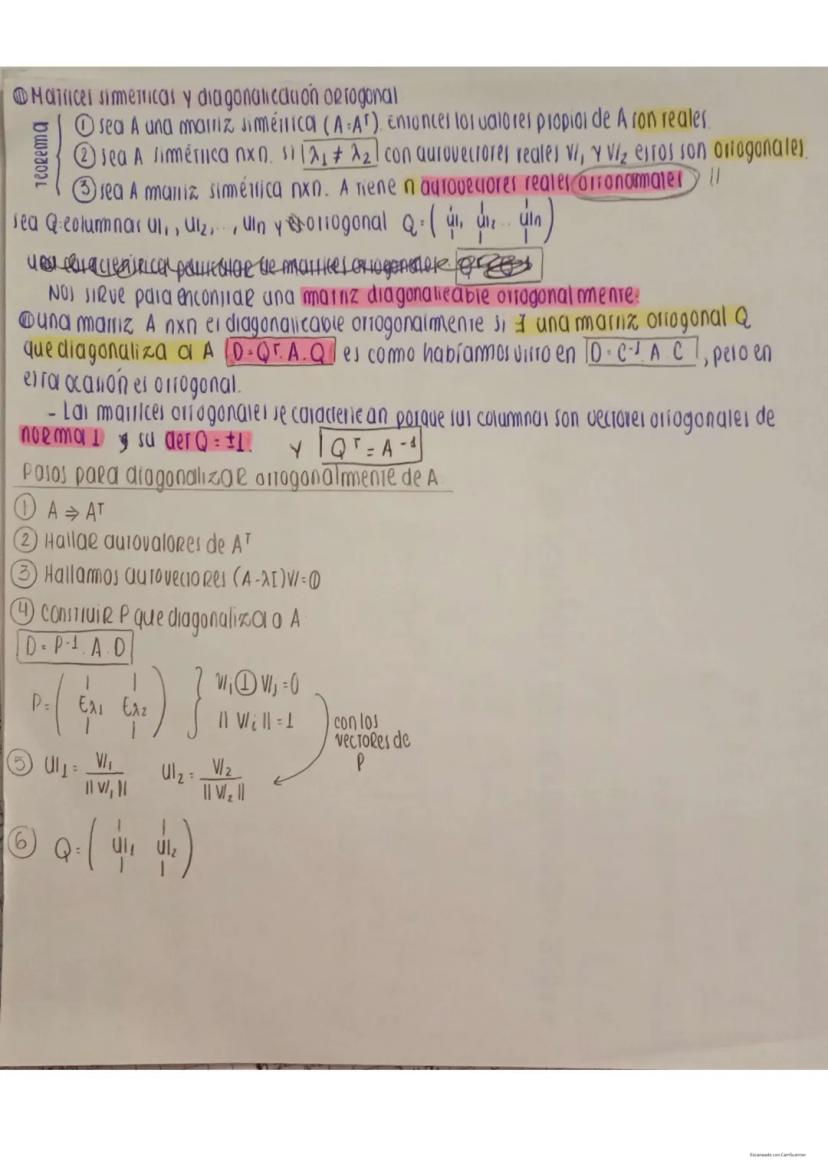 ⑪ Matrices simetricas y diagonalización ortogonal
Teorema
① sea A una matriz simétrica (A=Aᵀ). Entonces los valores propios de A son reales.
② sea A simétrica nxn. si λ₁ ≠ λ₂ con autovectores reales V₁ y V₂ estos son ortogonales.
③ sea A matriz simétrica nxn. A tiene n autovectores reales ortonormales //
sea Q:columnas u₁, u₂, .., uₙ y ortogonal Q = ( u₁, u₂ .. uₙ )
Nos sirve para encontrar una matriz diagonalizable ortogonalmente.
una matriz A nxn es diagonalizable ortogonalmente si ∃ una matriz ortogonal Q
que diagonaliza a A D=Qᵀ.A.Q es como habíamos visto en D=C⁻¹.A.C, pero en
esta ocasión es ortogonal.
- Las matrices ortogonales se caracterizan porque sus columnas son vectores ortogonales de
norma 1 y su det Q = ±1. y Qᵀ = A⁻¹
Pasos para diagonalizar ortogonalmente de A
① A ⇒ Aᵀ
② Hallar autovalores de Aᵀ
③ Hallamos autovectores (A-λI)V=0
④ Construir P que diagonaliza a A
D = P⁻¹.A.D
P = ( Eλ₁ Eλ₂ ) } Vᵢ ⊥ Vⱼ = 0
|| Vᵢ || = 1
con los
vectores de
P
⑤ u₁ = V₁ / || V₁ || u₂ = V₂ / || V₂ ||
⑥ Q = ( u₁ u₂ )
Escaneado con CamScanner